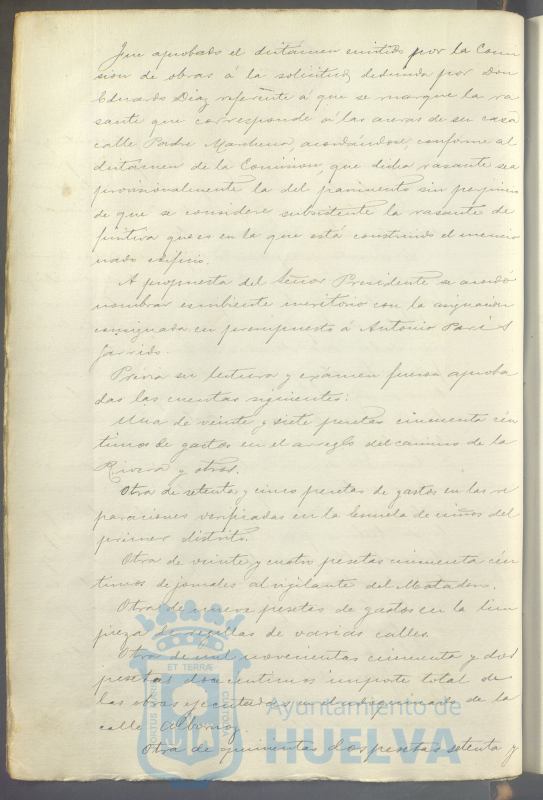 Fue aprobado el dictámen emitido por la Comi
sion de obras á la solicitud deducida por Don
Eduardo Diaz referente á que se marque la ra
sante que corresponde á las aceras de su casa
calle Padre Marchena, acordándose, conforme al
dictámen de la Comision, que dicha rasante sea
provisionalmente la del pavimento sin perjuicio
de que se considere subsistente la rasante de
finitiva que es en la que está construido el mencio
nado edificio.
A propuesta del Señor Presidente se acordó
nombrar escribiente meritorio con la asignacion
consignada en presupuesto á Antonio
Garrido.
Prévia su lectura y exámen fueron aproba
das las cuentas siguientes:
Una de veinte y siete pesetas cincuenta cén
timos de gastos en el arreglo del camino de la
Rivera y otros.
Otra de setenta y cinco pesetas de gastos en las re
paraciones verificadas en la Escuela de niños del
primer distrito.
Otra de veinte y cuatro pesetas cincuenta cén
timos de jornales al vigilante del Matadero.
Otra de nueve pesetas de gastos en la lim
pieza de rejillas de varias calles.
Otra de mil novecientas cincuenta y dos
pesetas doce centimos importe total de
las obras ejecutadas en el adoquinado de la
calle Albornoz.
Otra de quinientas dos pesetas setenta y
ET TERRÆ
PORTUS MARIS
CUSTODIA
Ayuntamiento de
HUELVA